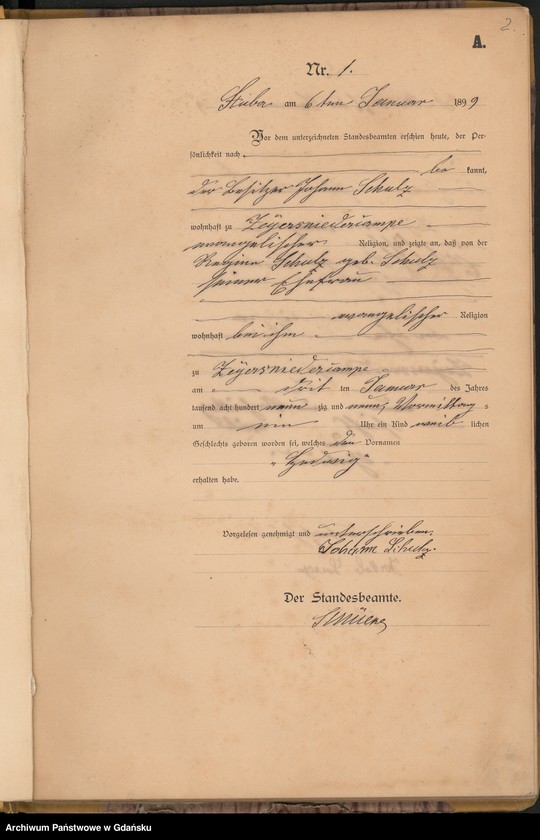 2.
A.
Nr. 1.
Stuba am 6ten Januar 1899
Vor dem unterzeichneten Standesbeamten erschien heute, der Per-
sönlichkeit nach
be kannt,
der Besitzer Johann Schulz
wohnhaft zu Zeyersniedercampe
evangelischer Religion, und zeigte an, daß von der
Regine Schulz geb. Schulz
seiner Ehefrau
evangelischer Religion
wohnhaft bei ihm
zu Zeyersniedercampe
am drit ten Januar des Jahres
tausend acht hundert neun zig und neun, Vormittag s
um ein Uhr ein Kind weib lichen
Geschlechts geboren worden sei, welches den Vornamen
"Hedwig"
erhalten habe.
Vorgelesen genehmigt und unterschrieben.
Johann Schulz.
Der Standesbeamte.
Archiwum Państwowe w Gdańsku